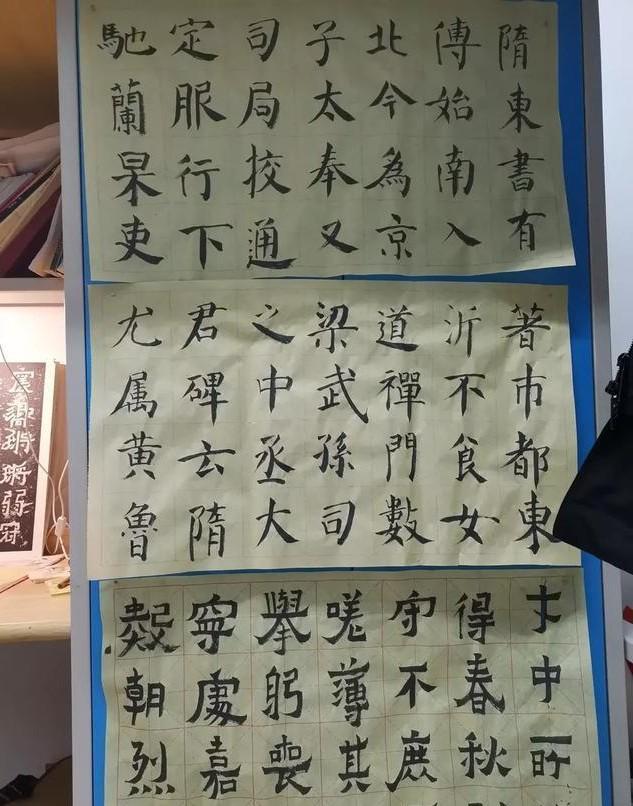 隋東書有
傅始南入
北今為京
子太奉又
司局挍通
定服行下
馳蘭杲吏
著市都東
沂不食女
道禪門數
梁武孫司
之中丞大
君碑云隋
尤属黄魯
中
得春秋
守不庶
嗟薄其
舉躬喪
寧處嘉
朝烈